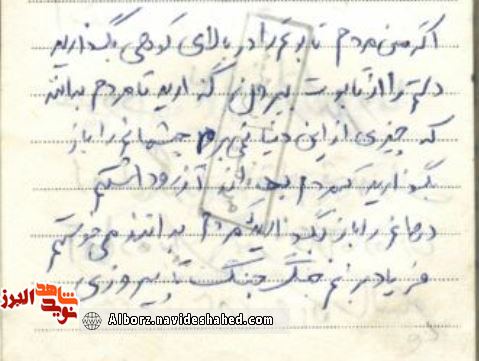 اگر من مردم تابوتم را در بالای کوهی بگذارید
دستم را از تابوت بیرون گذارید تا مردم بدانند
که چیزی از این دنیا نمی‌برم چشمانم را باز
بگذارید که مردم بدانند آرزو داشتم
دهانم را باز بگذارید که مردم بدانند می‌خواستم
فریاد بزنم جنگ جنگ تا پیروزی
شاهد
نوید
البرز
Alborz.navideshahed.com